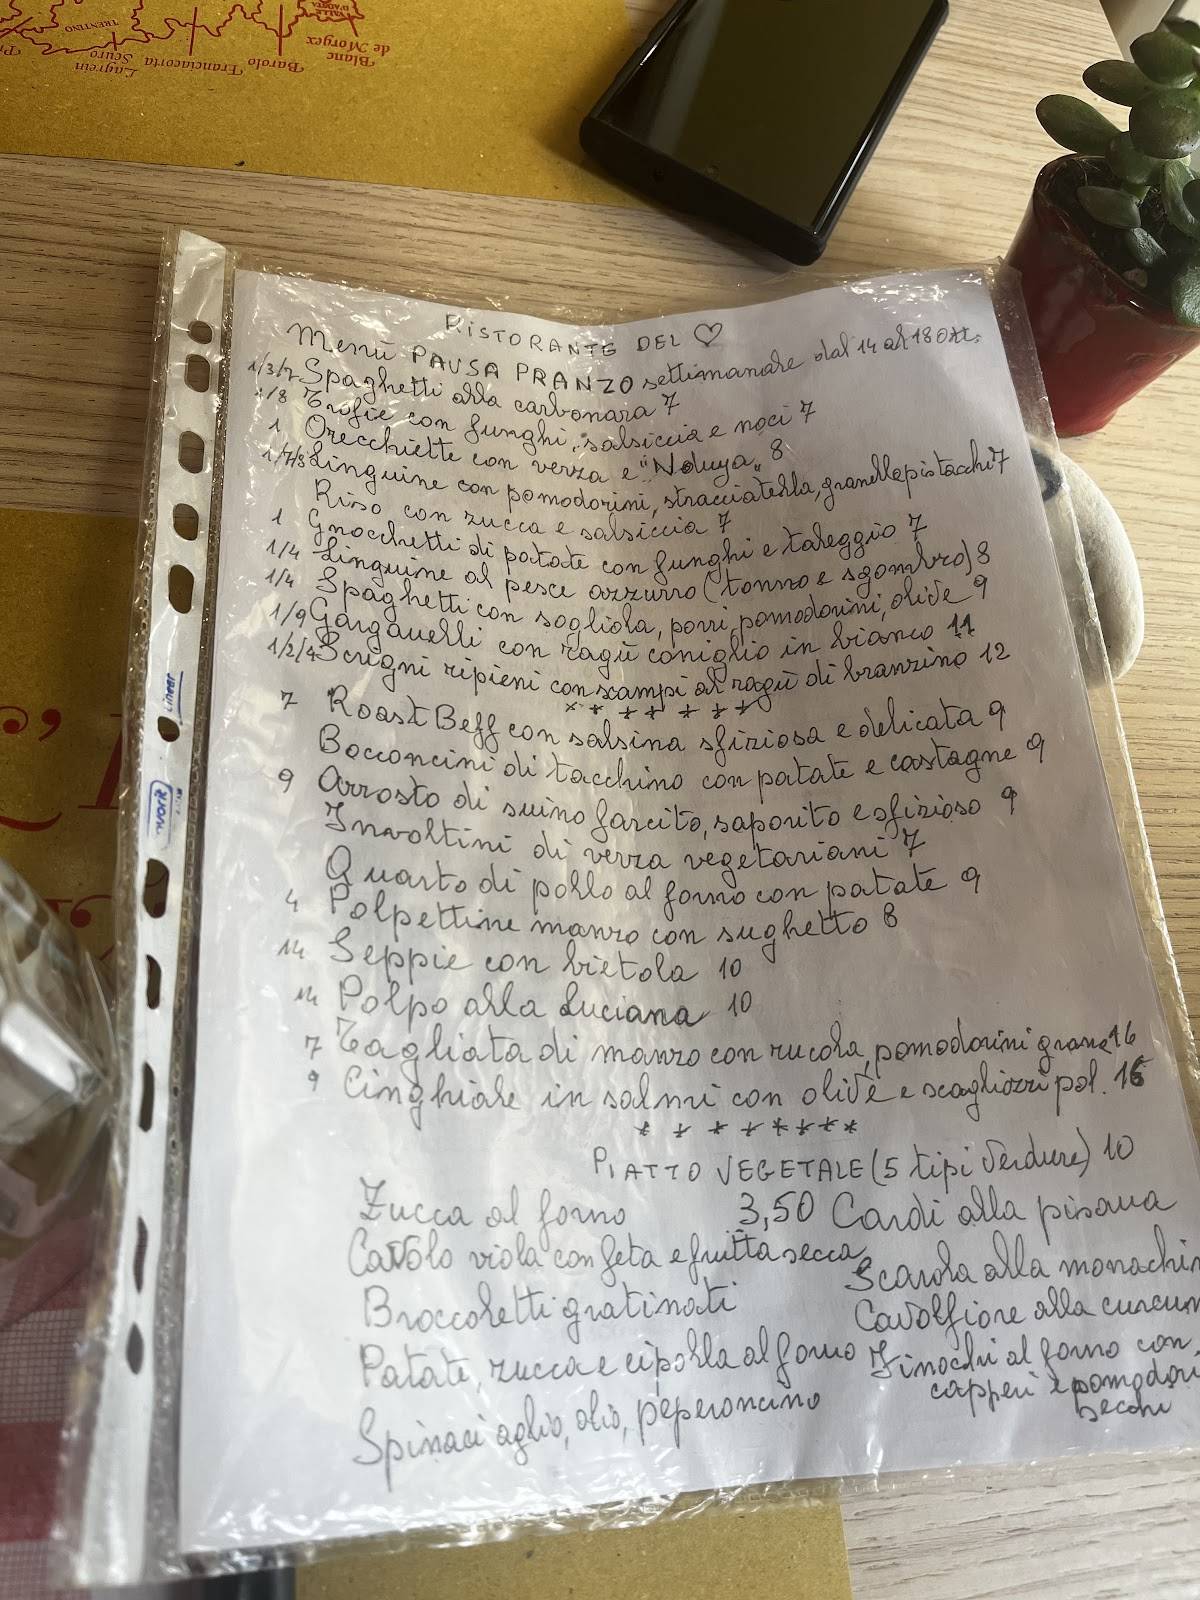 Blanc de Morgex
VALLE D'AOSTA
Barolo
Franciacorta
TRENTINO
Lagrein Scuro
RISTORANTE DEL ♡
Menù PAUSA PRANZO settimanale dal 14 al 18 Ott.
1/3/7 Spaghetti alla carbonara 7
1/8 Trofie con funghi, salsiccia e noci 7
1 Orecchiette con verza e "Nduya" 8
1/7/8 Linguine con pomodorini, stracciatella, granella pistacchi 7
Riso con zucca e salsiccia 7
1 Gnocchetti di patate con funghi e taleggio 7
1/4 Linguine al pesce azzurro (tonno e sgombro) 8
1/4 Spaghetti con sogliola, porri, pomodorini, olive 9
1/9 Garganelli con ragù coniglio in bianco 11
1/2/4 Scrigni ripieni con scampi al ragù di branzino 12
* * * * * * *
7 Roast Beff con salsina sfiziosa e delicata 9
Bocconcini di tacchino con patate e castagne 9
9 Arrosto di suino farcito, saporito e sfizioso 9
Involtini di verza vegetariani 7
Quarto di pollo al forno con patate 9
4 Polpettine manzo con sughetto 8
14 Seppie con bietola 10
14 Polpo alla Luciana 10
7 Tagliata di manzo con rucola, pomodorini grana 16
9 Cinghiale in salmi con olive e scagliozzi pol. 16
* * * * * * * *
PIATTO VEGETALE (5 tipi Verdure) 10
Zucca al forno 3,50 Cardi alla pisana
Cavolo viola con feta e frutta secca
Scarola alla monachin
Broccoletti gratinati
Cavolfiore alla curcum
Patate, zucca e cipolla al forno
Finocchi al forno con
capperi e pomodori
secchi
Spinaci aglio, olio, peperoncino